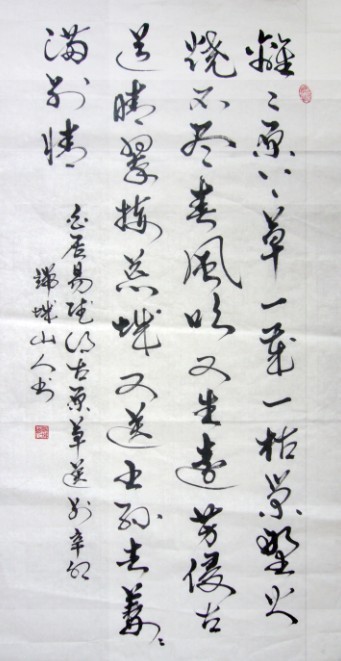 離〻原上草一歲一枯榮野火
燒不盡春風吹又生遠芳侵古
道晴翠接荒城又送王孫去萋〻
滿別情
白居易賦得古原草送別辛卯
城山人书